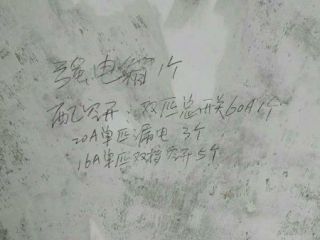 强电箱1个
配空开：双匹总开关60A1个
20A单匹漏电 3个
16A单匹双档空开5个